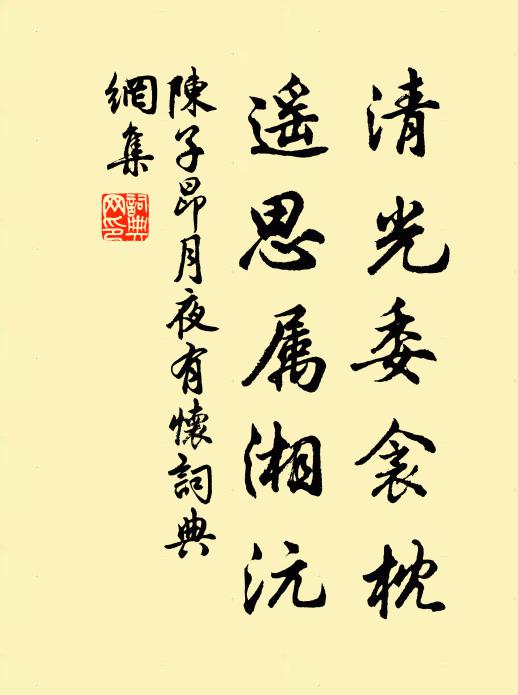 清光委衾枕
遥思属湘沅
陳子昂月夜有懷詞典
網集
詞典网印